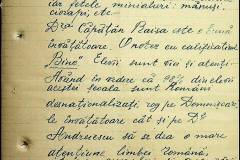 iar fetele miniaturi: mănuși,
ciorapi, etc.
D-ra Căpitan Raisa este o bună
învățătoare. O notez cu calificativul
"Bine" Elevii sunt vioi și atenți
Având în vedere că 90% din elevii
acestei școale sunt Români
desnaționalizați, rog pe Domnișoarele
învățătoare cât și pe Dl
Andreescu să se dea o mare
atențiune limbei română,